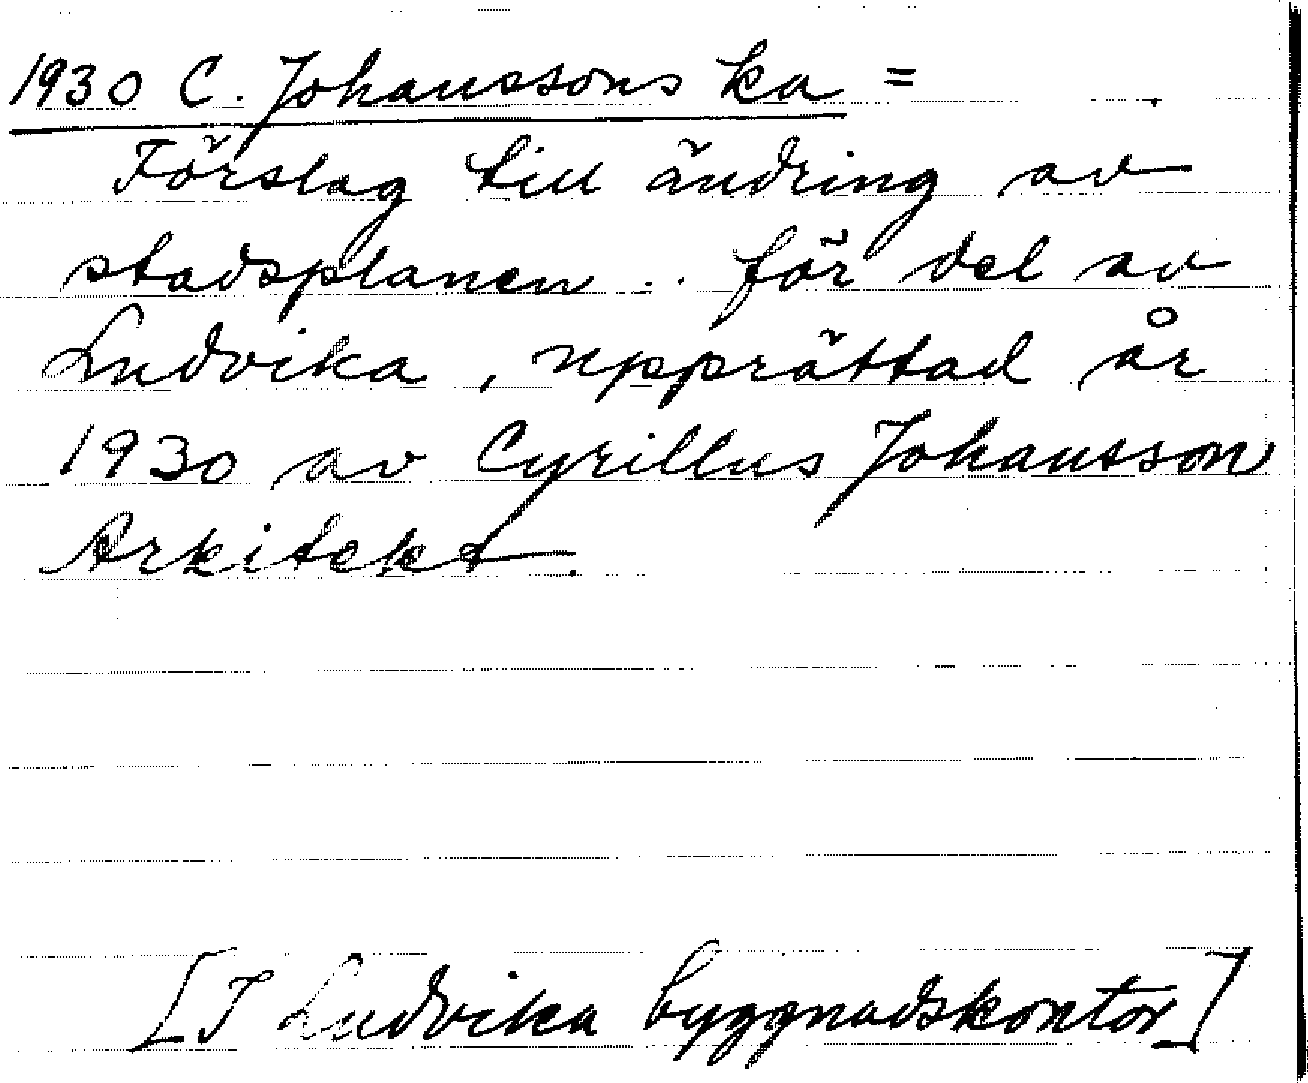 1930 C. Johanssons ka =
Förslag till ändring av
stadsplanen .. för del av
Ludvika, upprättad år
1930 av Cyrillus Johansson
Arkitekt.
[I Ludvika byggnadskontor]